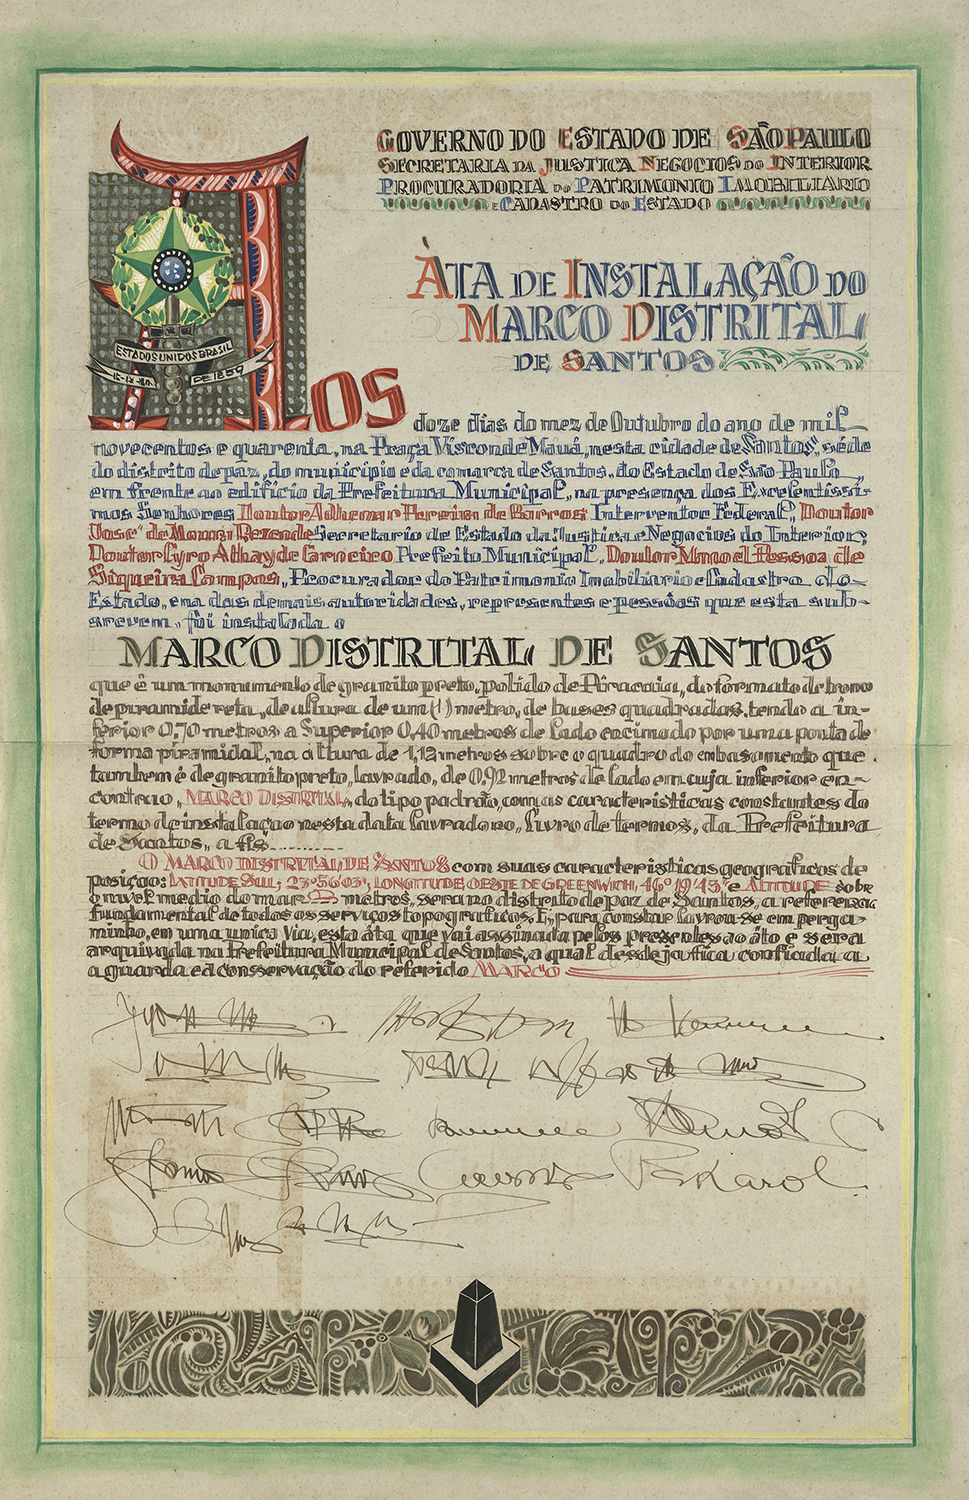 GOVERNO DO ESTADO DE SÃO PAULO
SECRETARIA DA JUSTICA NEGOCIOS DO INTERIOR
PROCURADORIA DO PATRIMONIO IMOBILIARIO
E CADASTRO DO ESTADO
ÀTA DE INSTALAÇÃO DO
MARCO DISTRITAL
DE SANTOS
ESTADOS UNIDOS BRASIL
DE 1889
AOS
doze dias do mez de Outubro do ano de mil
novecentos e quarenta, na Praça Visconde Mauá, nesta cidade de Santos, séde
do distrito de paz, do município e da comarca de Santos, do Estado de São Paulo
em frente ao edifício da Prefeitura Municipal, na presença dos Excelentissi-
mos Senhores Doutor Adhemar Pereira de Barros Interventor Federal, Doutor
José de Moura Rezende Secretario de Estado da Justica e Negocios do Interior,
Doutor Cyro Athayde Carneiro Prefeito Municipal, Doutor Manoel Pessoa de
Siqueira Campos, Procurador do Patrimonio Imobiliário e Cadastro do
Estado, e na das demais autoridades, representes e pessôas que esta sub-
screvem, foi instalada o
MARCO DISTRITAL DE SANTOS
que é um monumento de granito preto, polido de Piracaia, do formato de tronco
de piramide reta, de altura de um (1) metro, de bases quadradas, tendo a in-
ferior 0,70 metros a Superior 0,40 metros de lado encimado por uma ponta de
forma piramidal, na altura de 1,12 metros sobre o quadro do embasamento que
tambem é de granito preto, lavrado, de 0,92 metros de lado em cuja inferior en-
contrao, MARCO DISTRITAL, do tipo padrão, com as caracteristicas constantes do
termo de instalaçao nesta data lavrado no, livro de termos, da Prefeitura
de Santos, a fls...........
O MARCO DISTRITAL DE SANTOS com suas caracteristicas geograficos de
posição: LATITUDE SUL, 23°56'03", LONGITUDE OESTE DE GREENWICH, 46°19'43" e ALTITUDE sobre
o nivel medio do mar metros, sera no distrito de paz de Santos, a referencia
fundamental de todos os serviços topograficos. E, para constar lavrou-se em perga-
minho, em uma unica Via, esta áta que vai assinada pelos presentes ao áto e sera
arquivada na Prefeitura Municipal de Santos, a qual desde ja fica confiada a
a guarda e á conservação do referido MARCO